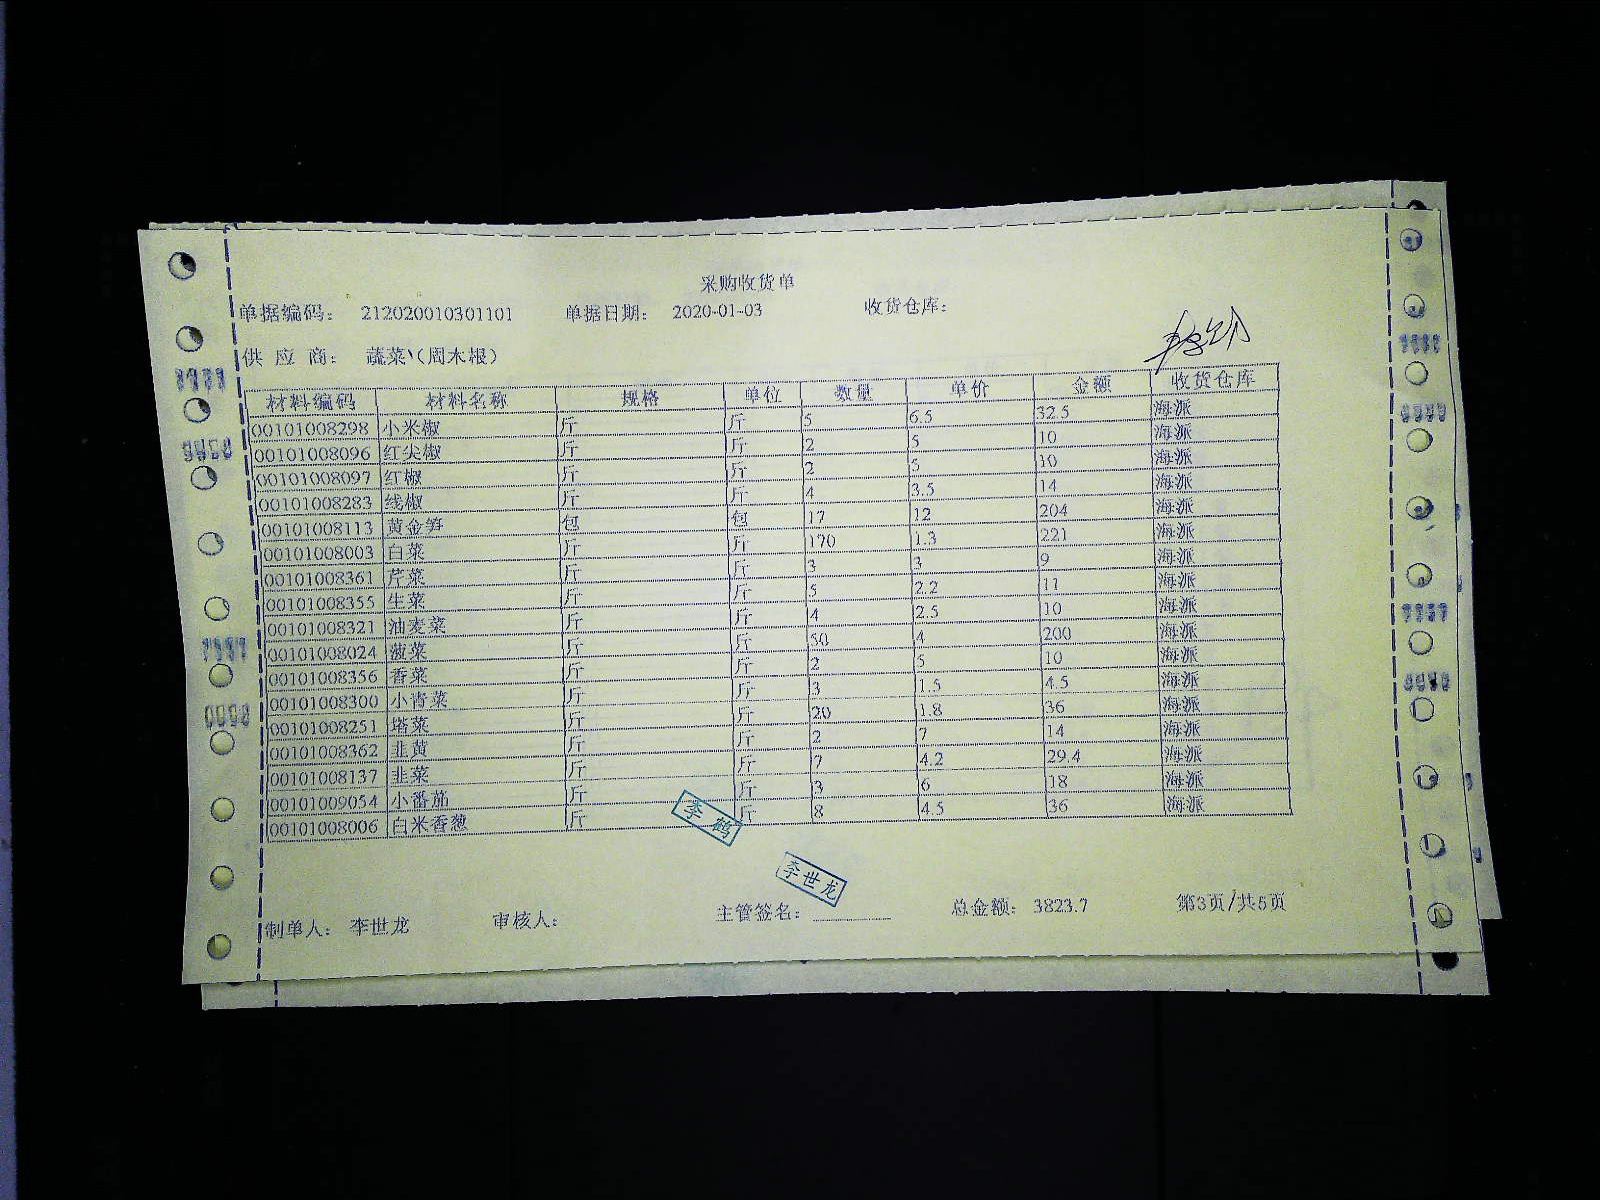 采购收货单
单据编码： 212020010301101 单据日期： 2020-01-03 收货仓库：
供 应 商： 蔬菜（周木根）
材料编码 材料名称 规格 单位 数量 单价 金额 收货仓库
00101008298 小米椒 斤 斤 5 6.5 32.5 海派
00101008096 红尖椒 斤 斤 2 5 10 海派
00101008097 红椒 斤 斤 2 5 10 海派
00101008283 线椒 斤 斤 4 3.5 14 海派
00101008113 黄金笋 包 包 17 12 204 海派
00101008003 白菜 斤 斤 170 1.3 221 海派
00101008361 芹菜 斤 斤 3 3 9 海派
00101008355 生菜 斤 斤 5 2.2 11 海派
00101008321 油麦菜 斤 斤 4 2.5 10 海派
00101008024 菠菜 斤 斤 50 4 200 海派
00101008356 香菜 斤 斤 2 5 10 海派
00101008300 小青菜 斤 斤 3 1.5 4.5 海派
00101008251 塔菜 斤 斤 20 1.8 36 海派
00101008362 韭黄 斤 斤 2 7 14 海派
00101008137 韭菜 斤 斤 7 4.2 29.4 海派
00101009054 小番茄 斤 斤 3 6 18 海派
00101008006 白米香葱 斤 斤 8 4.5 36 海派
李鹤
李世龙
制单人： 李世龙 审核人： 主管签名： 总金额： 3823.7 第3页/共5页